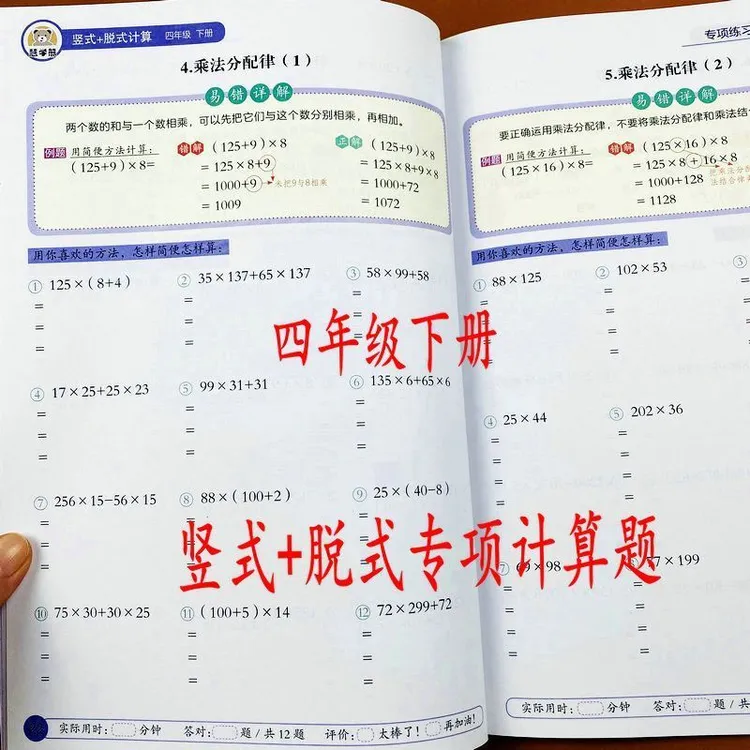 慧学熊
竖式+脱式计算 四年级 下册
4.乘法分配律（1）
易错详解
两个数的和与一个数相乘，可以先把它们与这个数分别相乘，再相加。
例题 用简便方法计算：
（125+9）×8=
错解 （125+9）×8
=125×8+9
=1000+9 未把9与8相乘
=1009
正解 （125+9）×8
=125×8+9×8
=1000+72
=1072
用你喜欢的方法，怎样简便怎样算：
① 125×（8+4）
=
=
=
=
② 35×137+65×137
=
=
=
=
③ 58×99+58
=
=
=
=
④ 17×25+25×23
=
=
=
=
⑤ 99×31+31
=
=
=
=
⑥ 135×6+65×6
=
=
=
=
⑦ 256×15-56×15
=
=
=
=
⑧ 88×（100+2）
=
=
=
=
⑨ 25×（40-8）
=
=
=
=
⑩ 75×30+30×25
=
=
=
=
⑪（100+5）×14
=
=
=
=
⑫ 72×299+72
=
=
=
=
实际用时： 分钟 答对： 题/共12题 评价： 太棒了！ 再加油！
专项练习
5.乘法分配律（2）
易错详解
要正确运用乘法分配律，不要将乘法分配律和乘法结
例题 用简便方法计算：
（125×16）×8=
错解 （125×16）×8
=125×8+16×8
=1000+128
=1128
把乘法分配
法结合律
用你喜欢的方法，怎样简便怎样算：
① 88×125
=
=
=
=
② 102×53
=
=
=
=
④ 25×44
=
=
=
=
⑤ 202×36
=
=
=
=
69×98
=
=
=
=
×199
=
=
=
=
实际用时： 分钟 答对： 题/共
四年级下册
竖式+脱式专项计算题